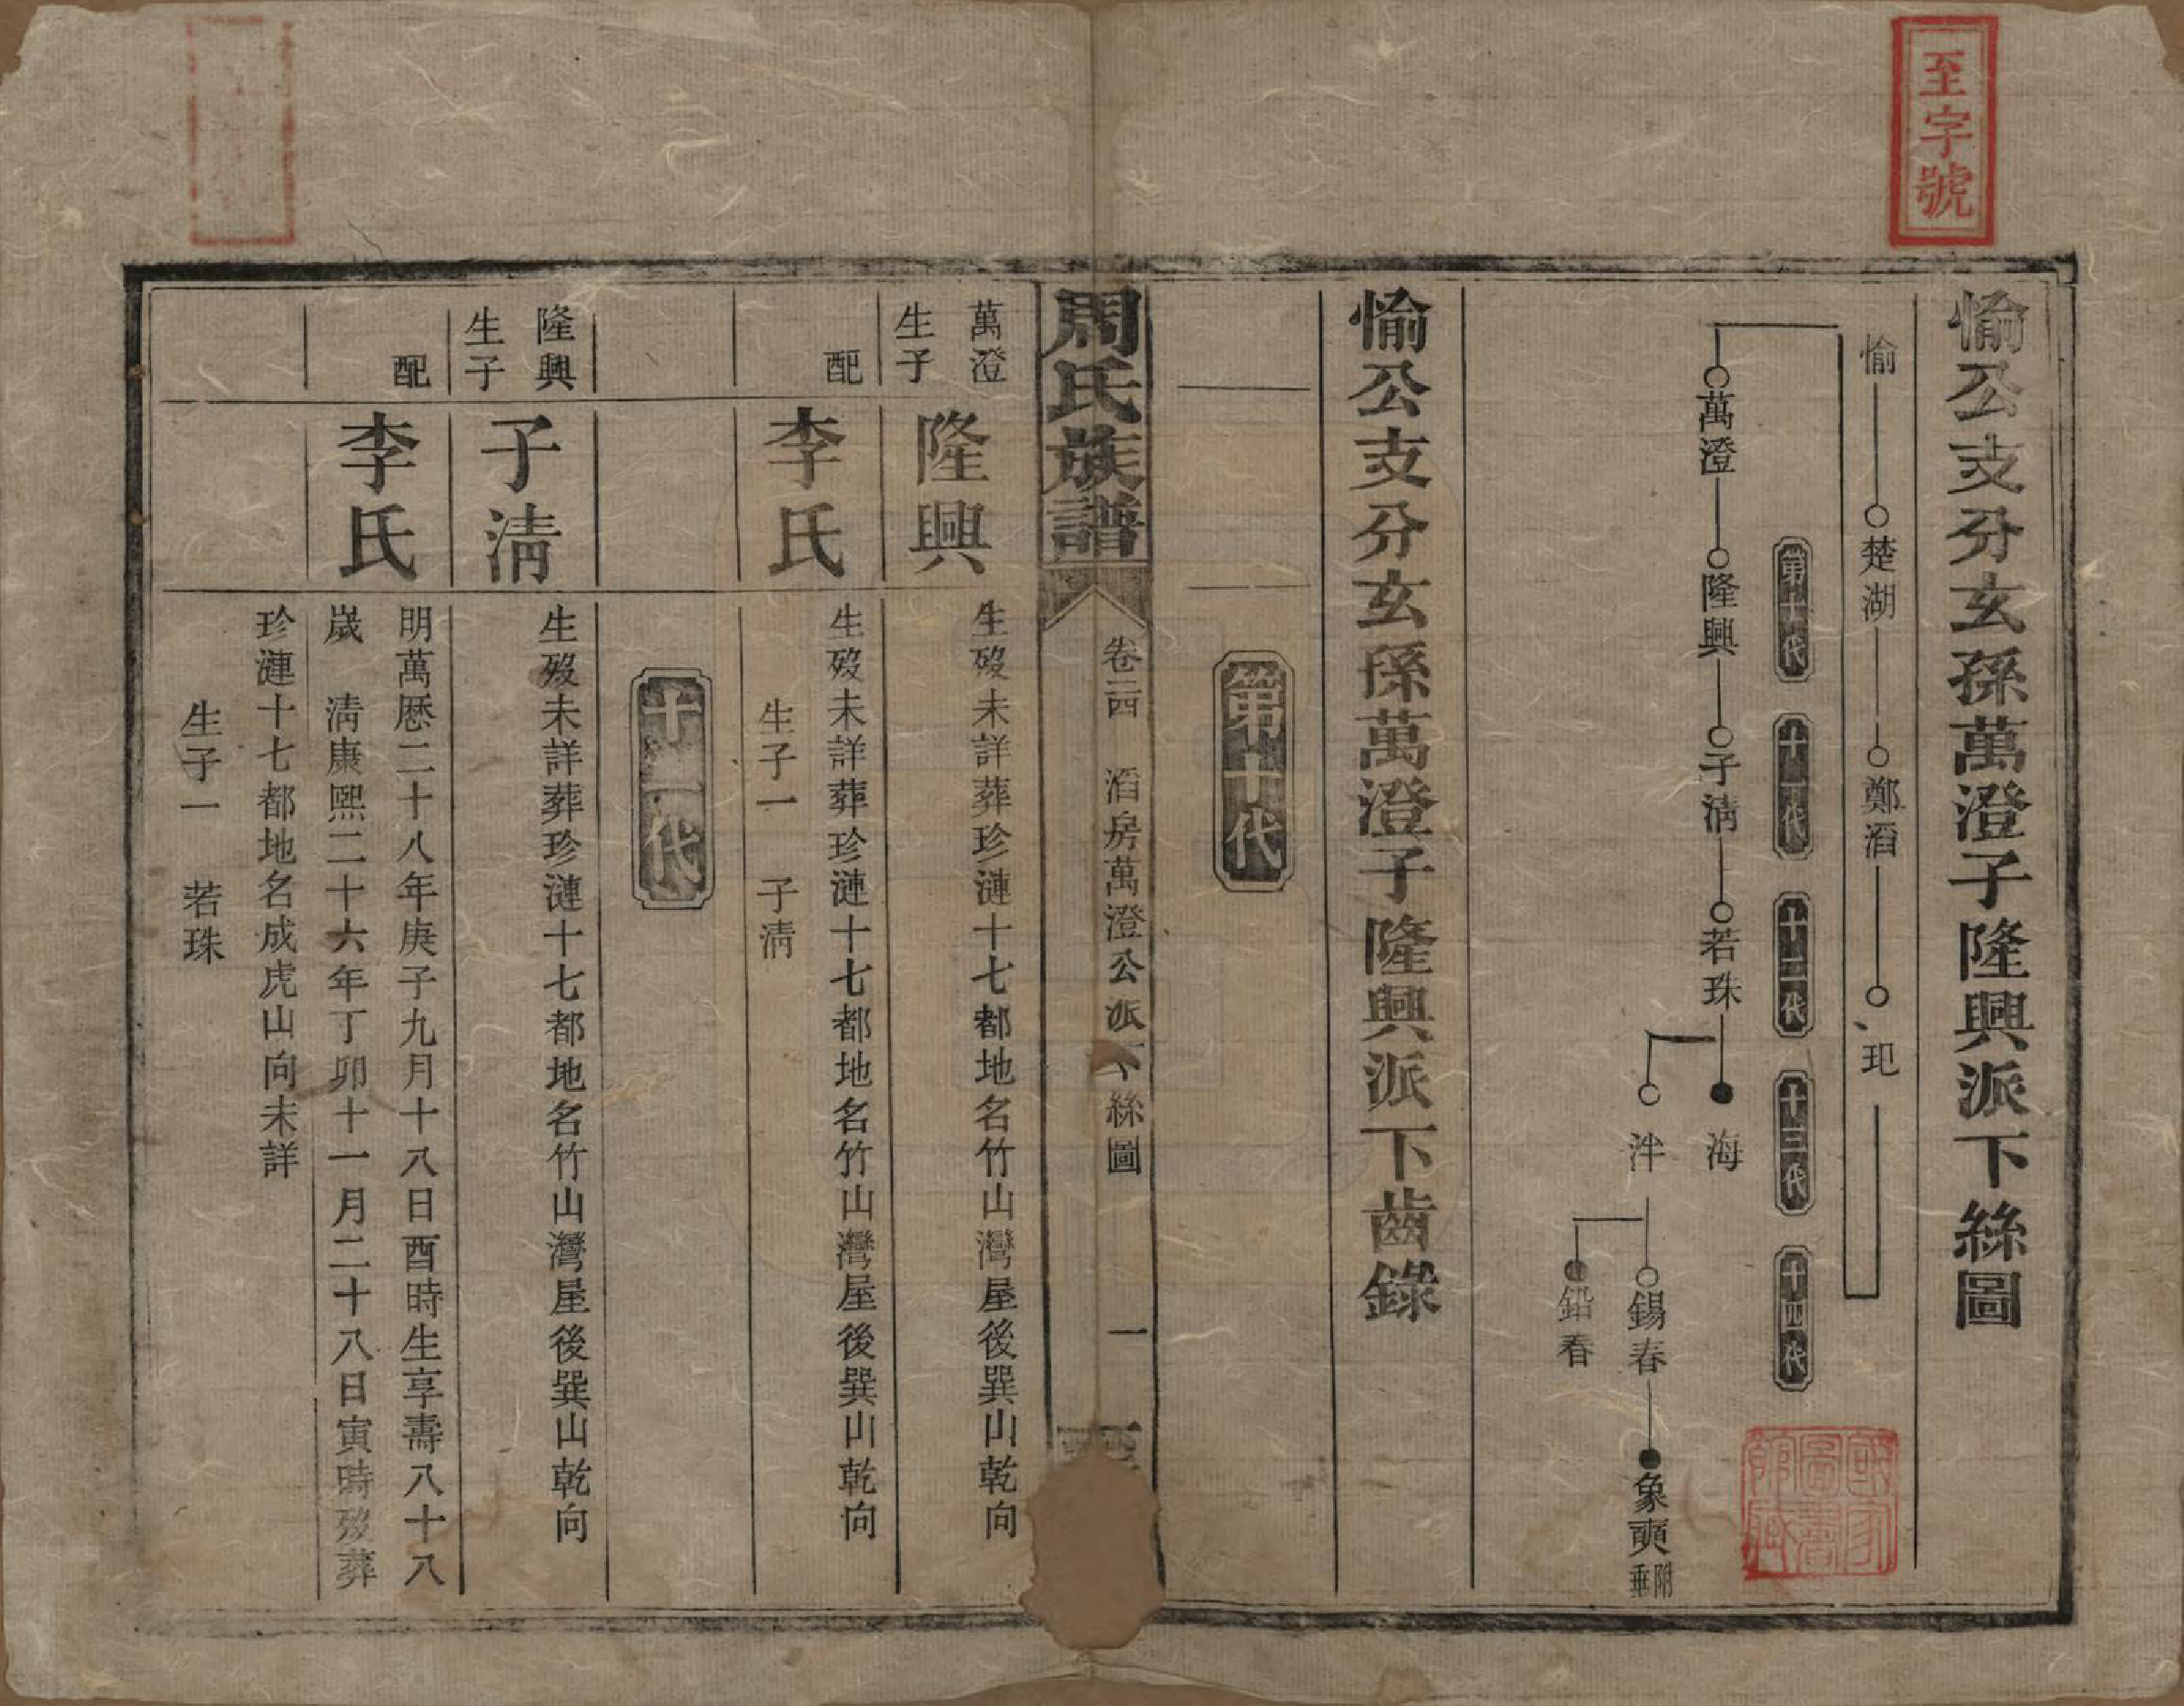 至字號
愉公支分玄孫萬澄子隆興派下絲圖
愉
楚湖
鄭滔
玘
第十代
十一代
十二代
十三代
十四代
萬澄
隆興
子清
若珠
海
泮
錫春
鉛春
象奭
附垂
愉公支分玄孫萬澄子隆興派下齒錄
第十代
周氏族譜
卷二四
滔房萬澄公派下絲圖
一
萬澄
生子
隆興
生歿未詳葬珍漣十七都地名竹山灣屋後巽山乾向
配
李氏
生歿未詳葬珍漣十七都地名竹山灣屋後巽山乾向
生子一 子清
十一代
隆興
生子
子清
生歿未詳葬珍漣十七都地名竹山灣屋後巽山乾向
配
李氏
明萬厯二十八年庚子九月十八日酉時生享壽八十八
歲 清康熙二十六年丁卯十一月二十八日寅時歿葬
珍漣十七都地名成虎山向未詳
生子一 若珠